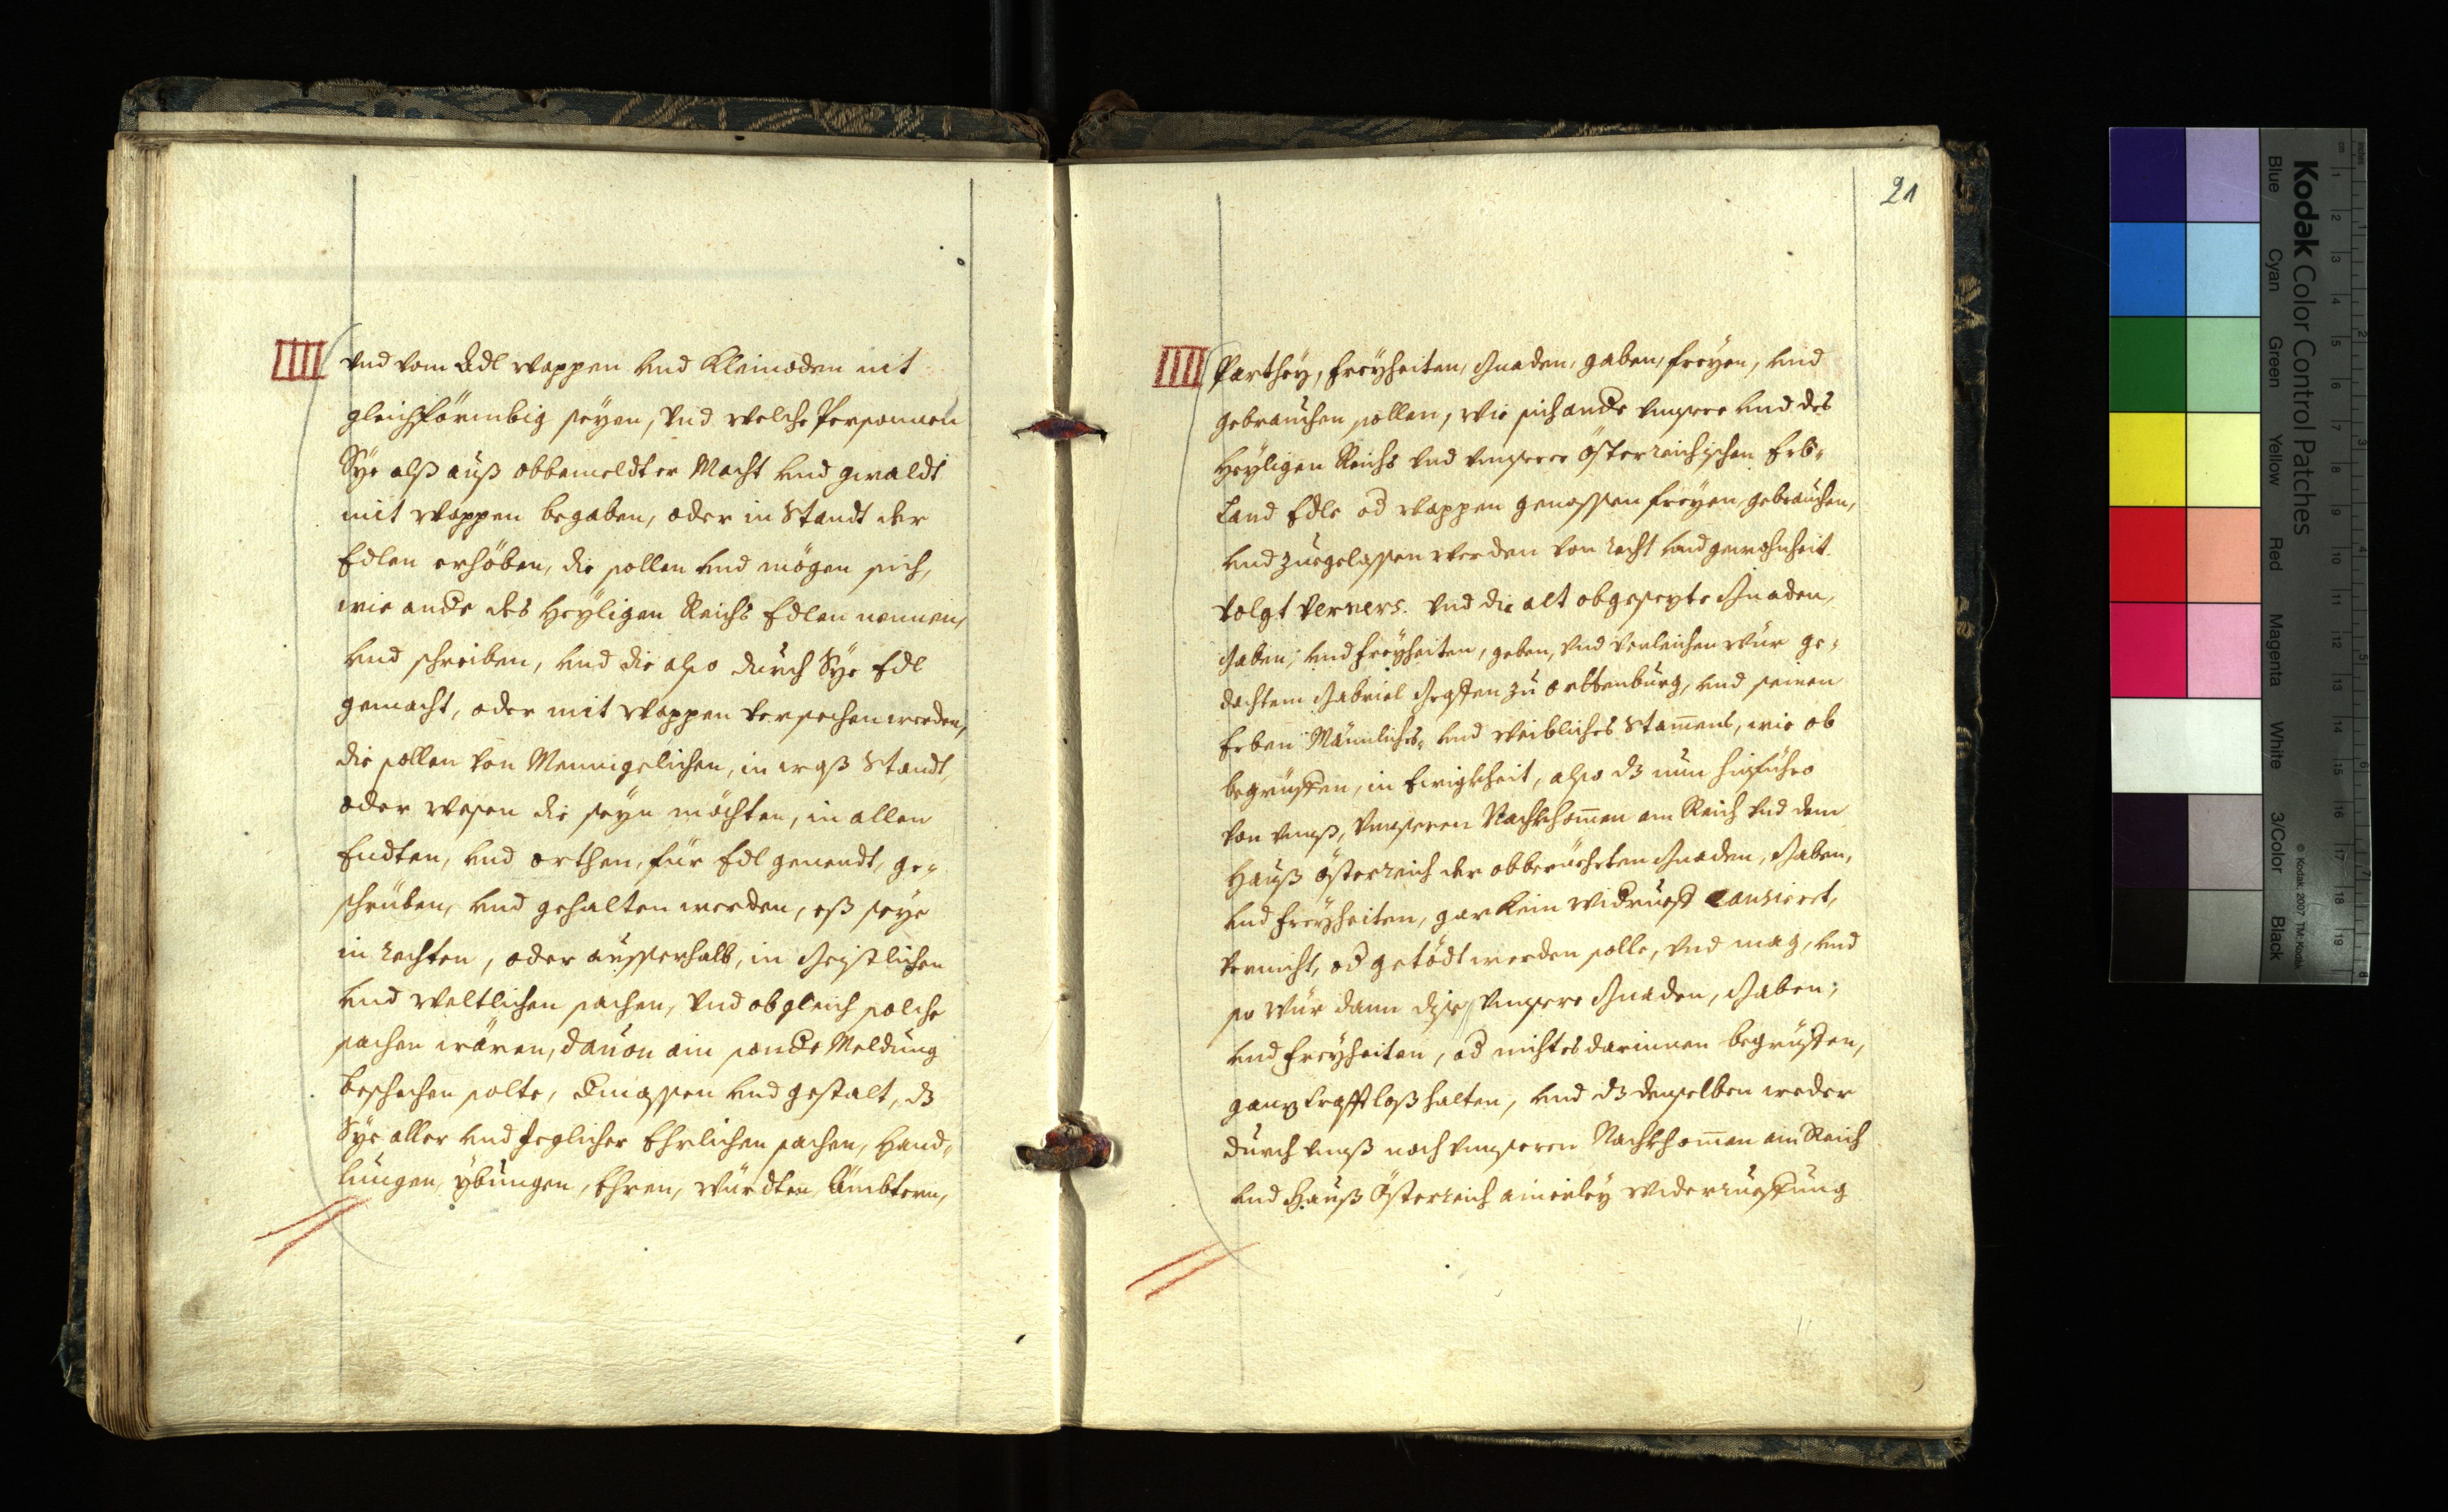 IIII vnd vom Adl wappen vnd Kleinoden nit
gleichförmbig seyen, vnd welche Personnen
Sÿe alß auß obbemeldter Macht vnd gwaldt
mit Wappen begaben, oder in Standt der
Edlen erhöben, die sollen vnd mögen sich,
wie ande des Heÿligen Reichs Edlen nennen,
vnd schreiben, vnd die also durch Sÿe Edl
gemacht, oder mit Wappen versechen werden,
die sollen von Mennigelichen, in waß Standt,
oder wesen die seÿn möchten, in allen
Endten, vnd orthen, für Edl genendt, ge=
schrüben, vnd gehalten werden, eß seÿe
in rechten, oder ausserhalb, in Geistlichen
vnd Weltlichen sachen, vnd obgleich solche
sachen wären, dauon ain sonde Meldung
beschechen solte, dmassen vnd gestalt, dz
Sÿe aller vnd Jeglicher Ehrlichen sachen, Hand=
lungen, ÿbungen, Ehren, Würdten, Ämbtern,
21
IIII Parthey, Freÿheiten, Gnaden, gaben, freÿen, vnd
gebrauchen sollen, wie sich ande vnsere vnd des
Heÿligen Reichs vnd vnsere Österreichischen Erb=
Land Edle od wappen genossen freÿen, gebrauchen,
vnd zuegelassen werden von recht vnd gewohnheit.
Volgt verners. Vnd die alt obgesezte Gnaden,
Gaben, vnd Freÿheiten, geben, vnd verleichen Wür ge=
dachtem Gabriel Grafen zu Orttenburg, vnd seinen
Erben Männliches, vnd Weibliches Stam̄ens, wie ob
begriffen, in Ewigkheit, also dz nun hinführo
von vnß, vnseren Nachkhom̄en am Reich vnd dem
Hauß Österreich der obberüehrten Gnaden, Gaben,
vnd Freÿheiten, gar kein Widrueff Cassieret,
vernicht, od getödt werden solle, vnd mag, vnd
so Wür dann dise vnsere Gnaden, Gaben;
vnd Freÿheiten, od nichtes darinnen begriffen,
ganz krafftloß halten, vnd dz denselben weder
durch vnß noch vnseren Nachkhom̄en am Reich
vnd Hauß Österreich ainerleÿ Widerrueffung
Kodak Color Control Patches
© Kodak, 2007 TM: Kodak
Blue Cyan Green Yellow Red Magenta White 3/Color Black